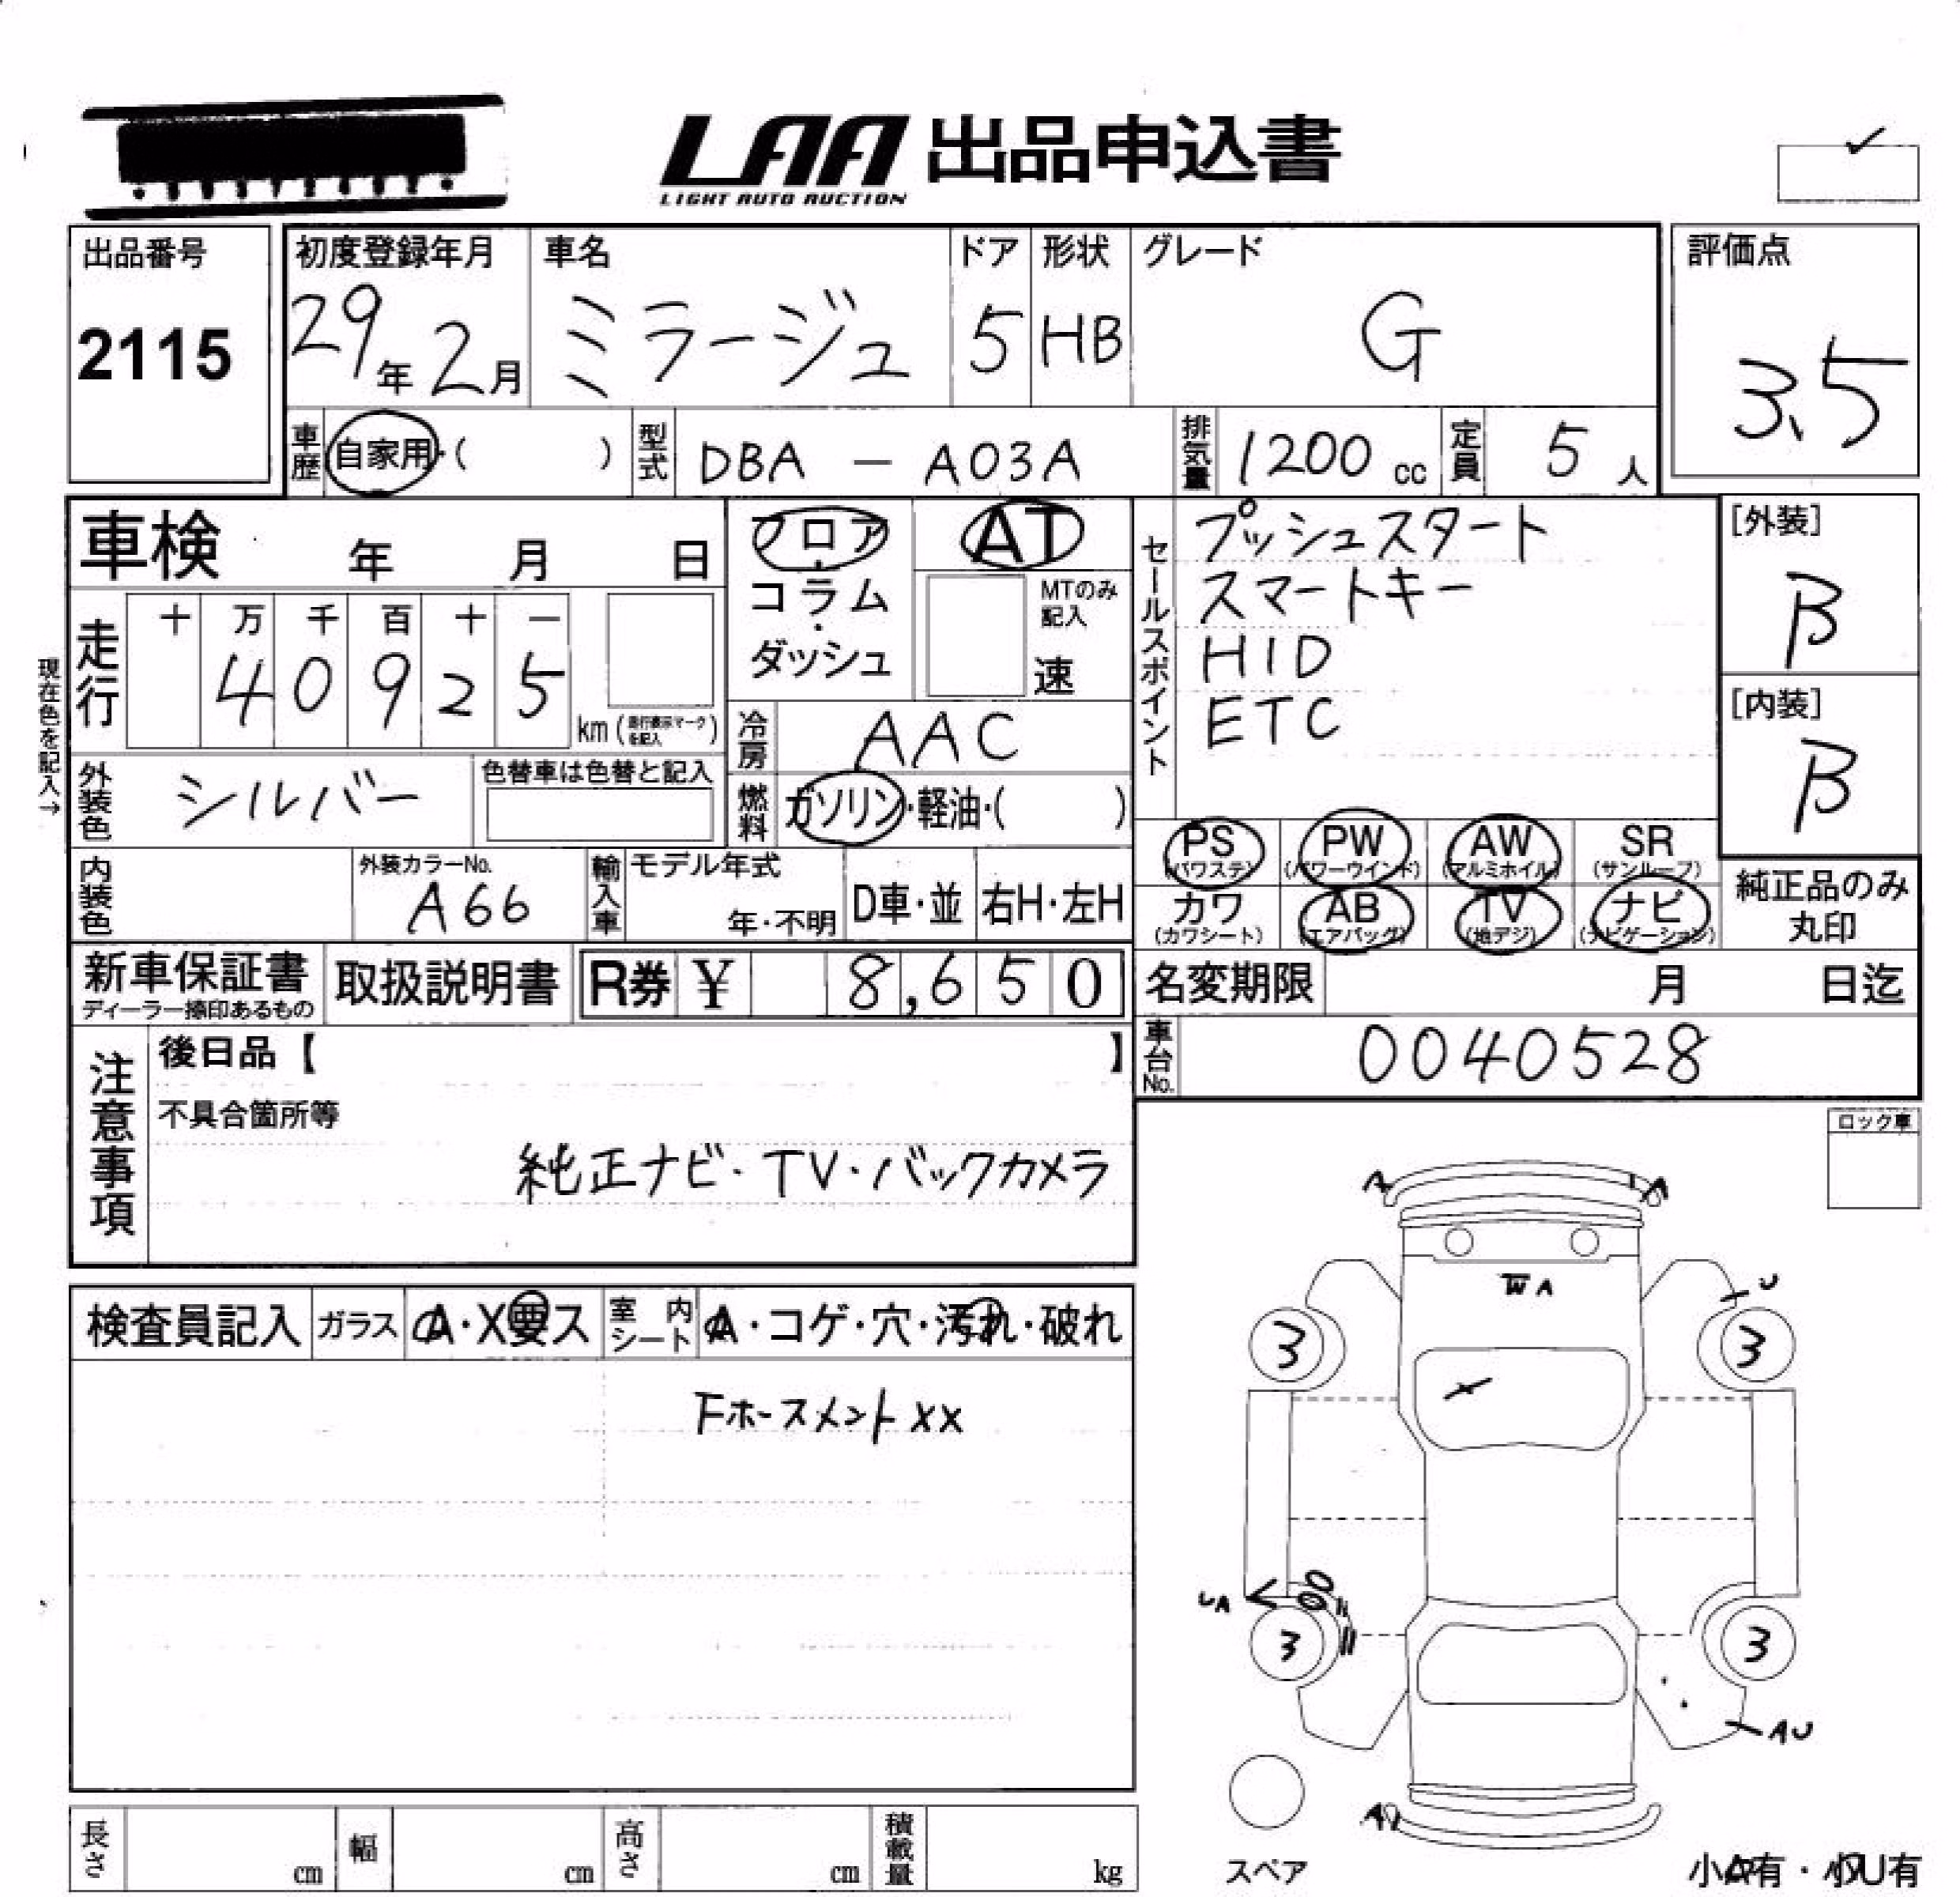 LAA 出品申込書
LIGHT AUTO AUCTION
出品番号
2115
初度登録年月
29年 2月
車名
ミラージュ
ドア
5
形状
HB
グレード
G
評価点
3.5
車歴 自家用・( )
型式 DBA - A03A
排気量 1200 cc
定員 5 人
車検 年 月 日
フロア・コラム・ダッシュ
AT
MTのみ記入
速
セールスポイント
プッシュスタート
スマートキー
HID
ETC
[外装]
B
[内装]
B
現在色を記入→
走行
十 万 千 百 十 一
4 0 9 2 5
km (走行表示マークを記入)
冷房 AAC
外装色 シルバー
色替車は色替と記入
燃料 ガソリン・軽油・( )
PS (パワステ)
PW (パワーウインド)
AW (アルミホイル)
SR (サンルーフ)
カワ (カワシート)
AB (エアバッグ)
TV (地デジ)
ナビ (ナビゲーション)
純正品のみ丸印
内装色
外装カラーNo.
A66
輸入車
モデル年式
年・不明
D車・並
右H・左H
新車保証書
ディーラー捺印あるもの
取扱説明書
R券 ¥ 8,650
名変期限 月 日迄
車台No. 0040528
注意事項
後日品【 】
不具合箇所等
純正ナビ・TV・バックカメラ
ロック車
検査員記入
ガラス A・X要ス
室内シート A・コゲ・穴・汚れ・破れ
Fホースメントxx
A
A
W A
U
3
3
X
UA
3
3
AU
A
スペア
小A有・小U有
長さ cm
幅 cm
高さ cm
積載量 kg